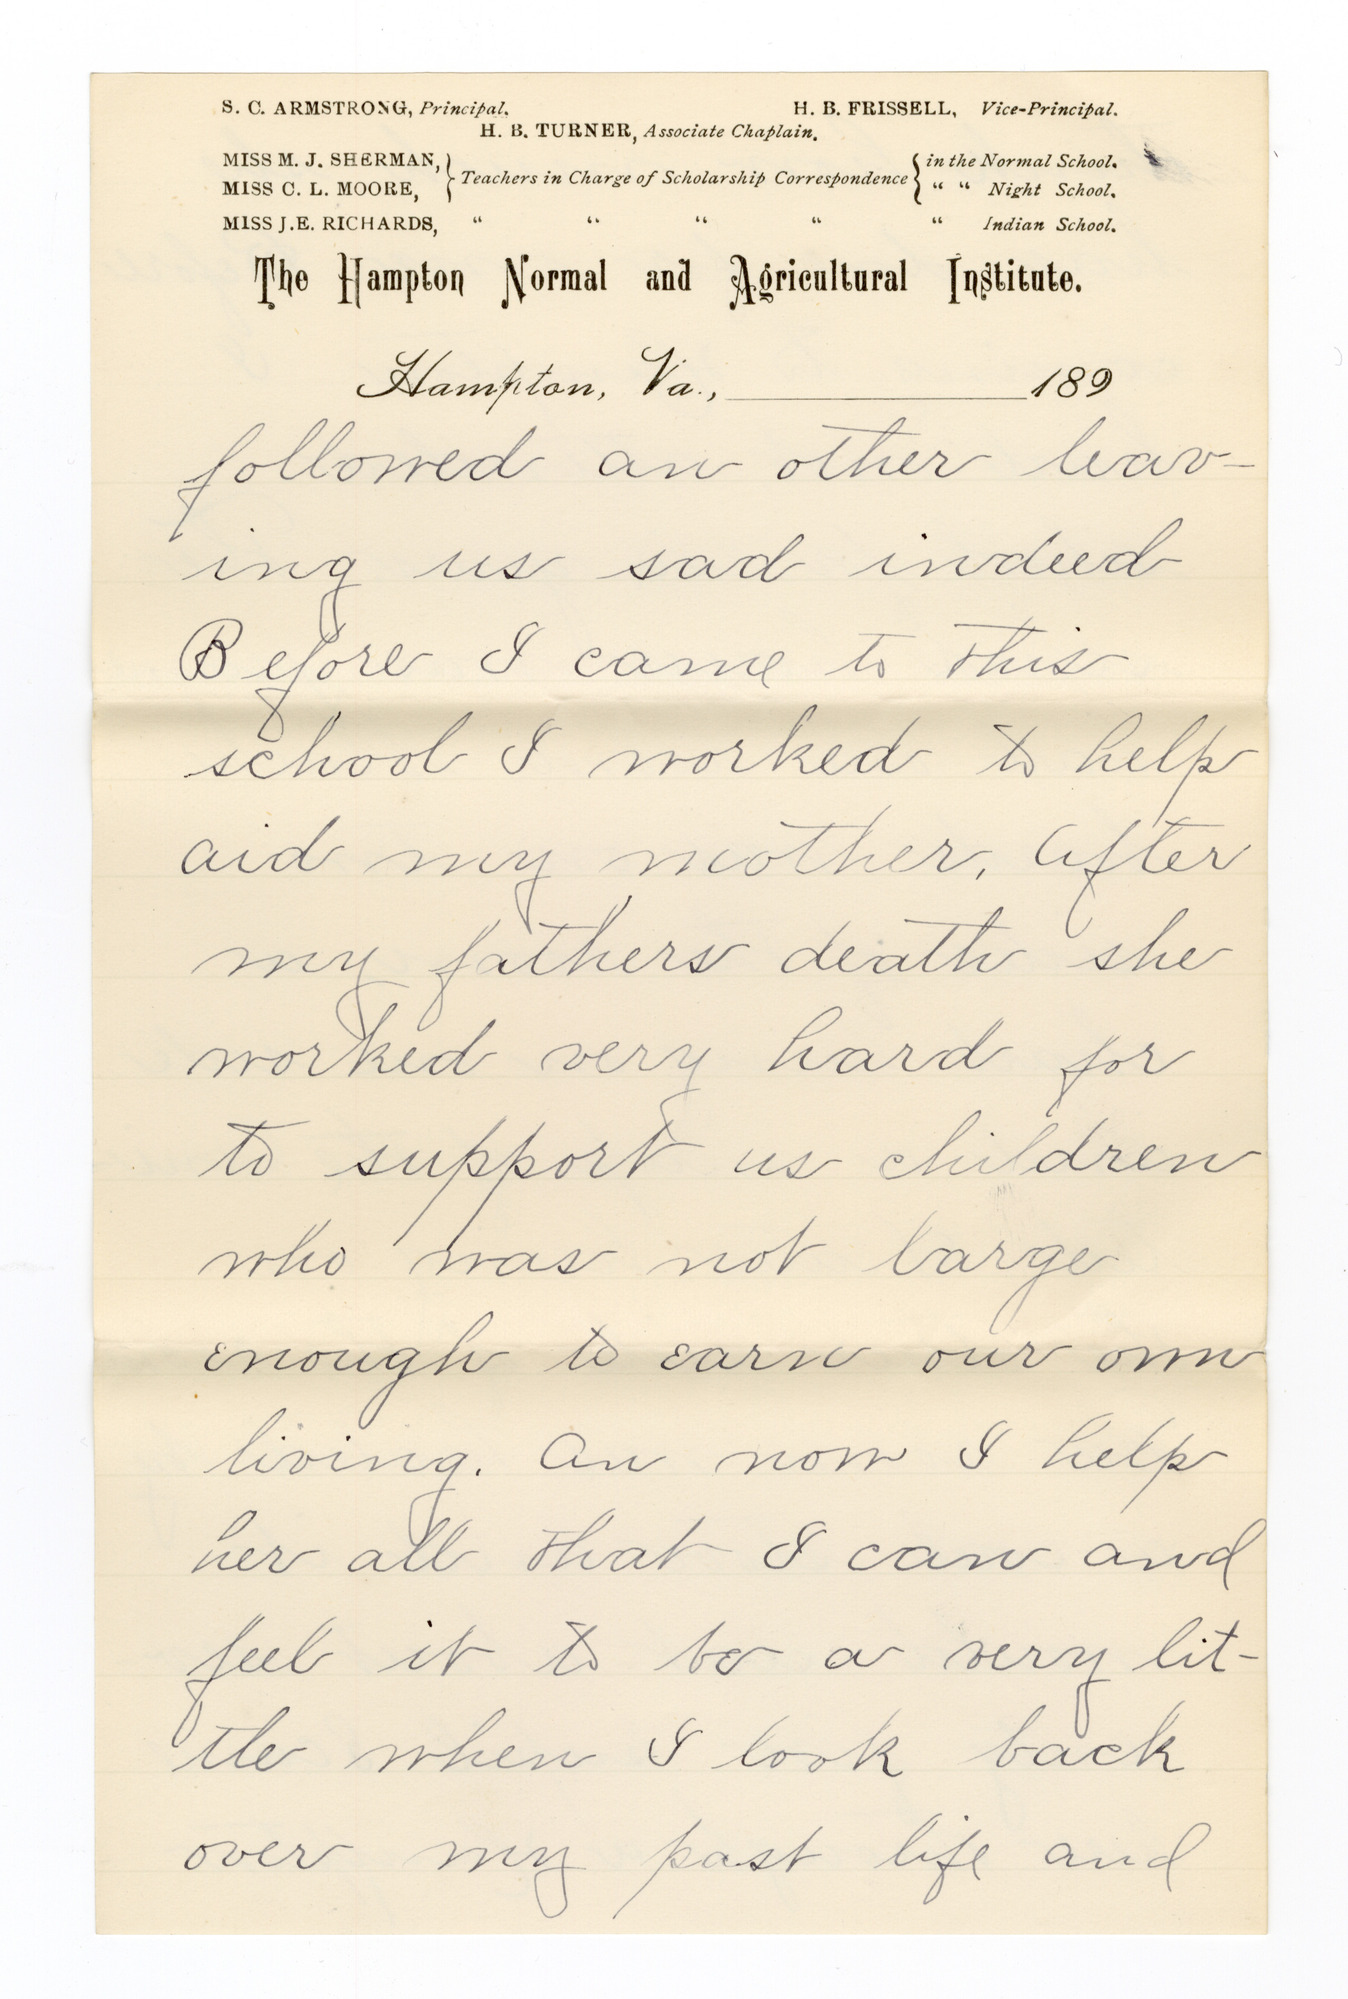 S. C. ARMSTRONG, Principal. H. B. FRISSELL, Vice-Principal.
H. B. TURNER, Associate Chaplain.
MISS M. J. SHERMAN, } Teachers in Charge of Scholarship Correspondence { in the Normal School.
MISS C. L. MOORE, “ “ Night School.
MISS J. E. RICHARDS, “ “ “ “ “ Indian School.
The Hampton Normal and Agricultural Institute.
Hampton, Va., 189
followed an other leav-
ing us sad indeed
Before I came to this
school I worked to help
aid my mother, After
my fathers death she
worked very hard for
to support us children
who was not large
enough to earn our own
living. An now I help
her all that I can and
feel it to be a very lit-
tle when I look back
over my past life and